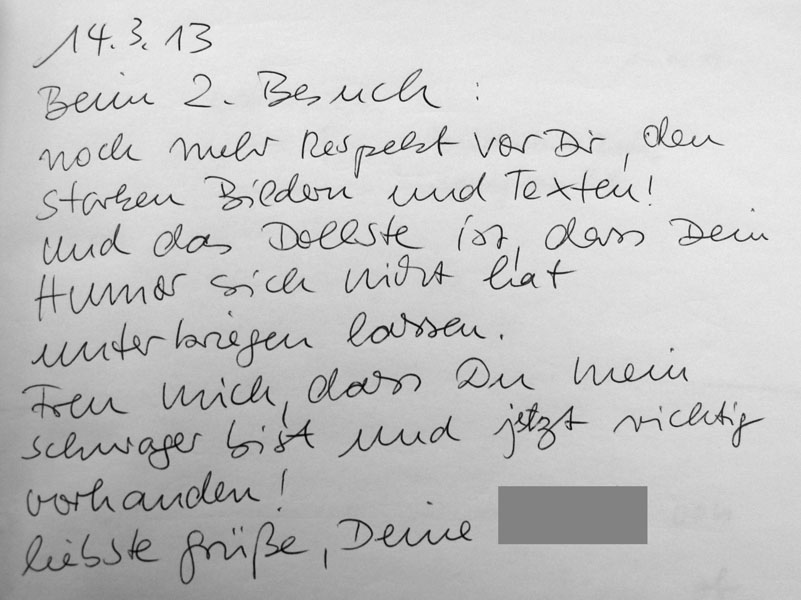 14.3.13
Beim 2. Besuch :
noch mehr Respekt vor Dir, den
starken Bildern und Texten!
Und das Dollste ist, dass Dein
Humor sich nicht hat
unterkriegen lassen.
Freu mich, dass Du mein
Schwager bist und jetzt richtig
vorhanden!
liebste Grüße, Deine